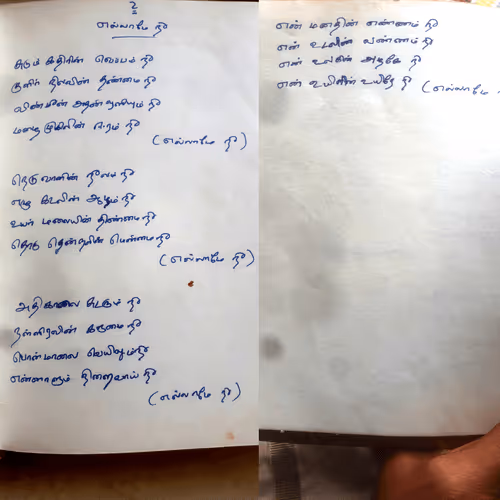 2
எல்லாமே நீ
சுடும் கதிரின் வெப்பம் நீ
குளிர் நிலவின் தண்மை நீ
விண்மீன்
மழை முகிலின் ஈரம் நீ
(எல்லாமே நீ)
நெடு வானின் நீலம் நீ
ஏழு கடலின் ஆழம் நீ
உயர் மலையின் திண்மை நீ
தொடு தென்றலின் மென்மை நீ
(எல்லாமே நீ)
அதிகாலை சுடரும் நீ
நள்ளிரவின் கருமை நீ
பொன்மாலை வெயிலும் நீ
எந்நாளும் நினைவாய் நீ
(எல்லாமே நீ)
என் மனதின் எண்ணம் நீ
என் உடலின் வண்ணம் நீ
என் உலகின் அழகே நீ
என் உயிரின் உயிரே நீ
(எல்லாமே